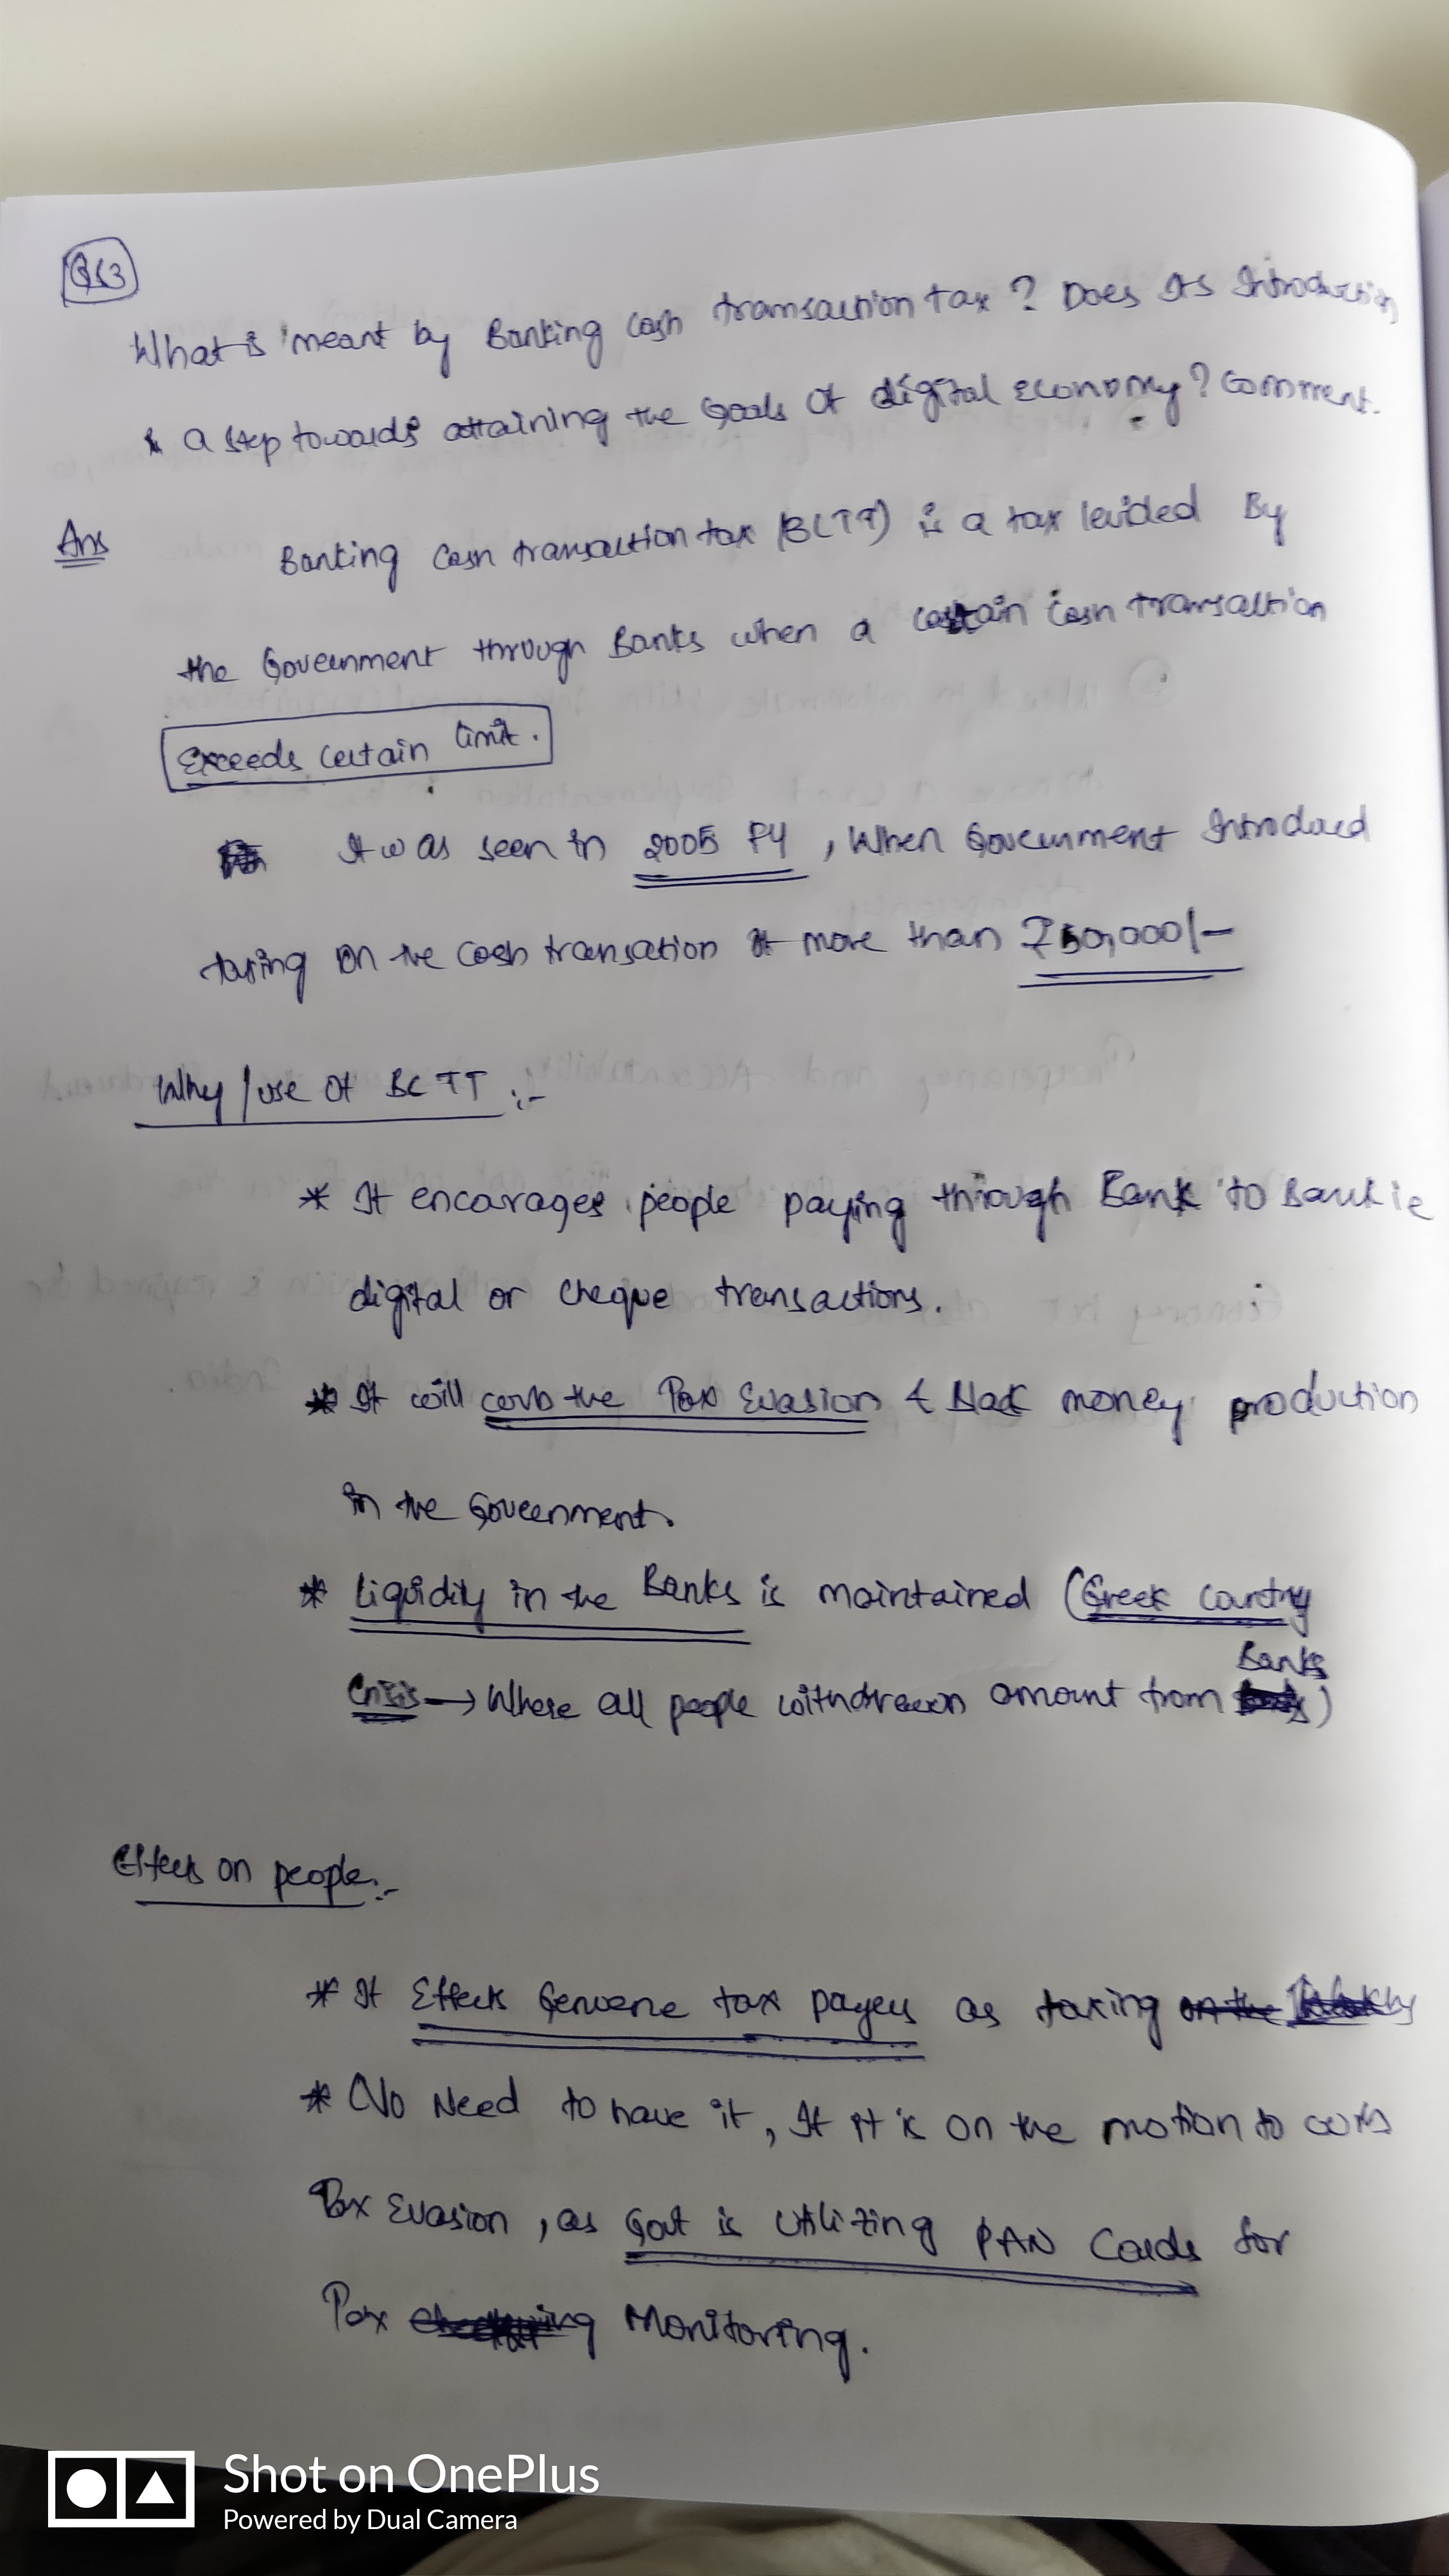 Q13
What is meant by Banking cash transaction tax ? Does Its Introduction
is a step towards attaining the Goals Of digital economy? Comment.
Ans
Banking Cash transaction tax (BCTT) is a tax levided By
the Government through Banks when a certain cash transaction
Exceeds certain limit.
It was seen in 2005 FY , When Government Introduced
taxing on the cash transation of more than ₹50,000/-
Why / use Of BCTT :-
* It encarages people paying through Bank to Bank ie
digital or cheque transactions.
* It will curb the Tax Evasion & black money production
in the Government.
* liquidity in the Banks is maintained (Greek country
Banks
Crisis → Where all people withdrawn amount from )
Effects on people:-
* It Effects Genuene tax payers as taxing
* No Need to have it, If it is on the motion to curb
Tax Evasion , as Govt is Utilizing PAN Cards for
Tax Monitoring.
Shot on OnePlus
Powered by Dual Camera